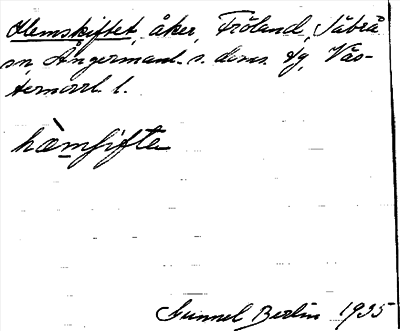 Hemskiftet, åker, Fröland, Säbrå
sn, Ångermanl. s. doms. tg, Väs-
ternorrl. l.
hæmʃifta
Gunnel Berlin 1935